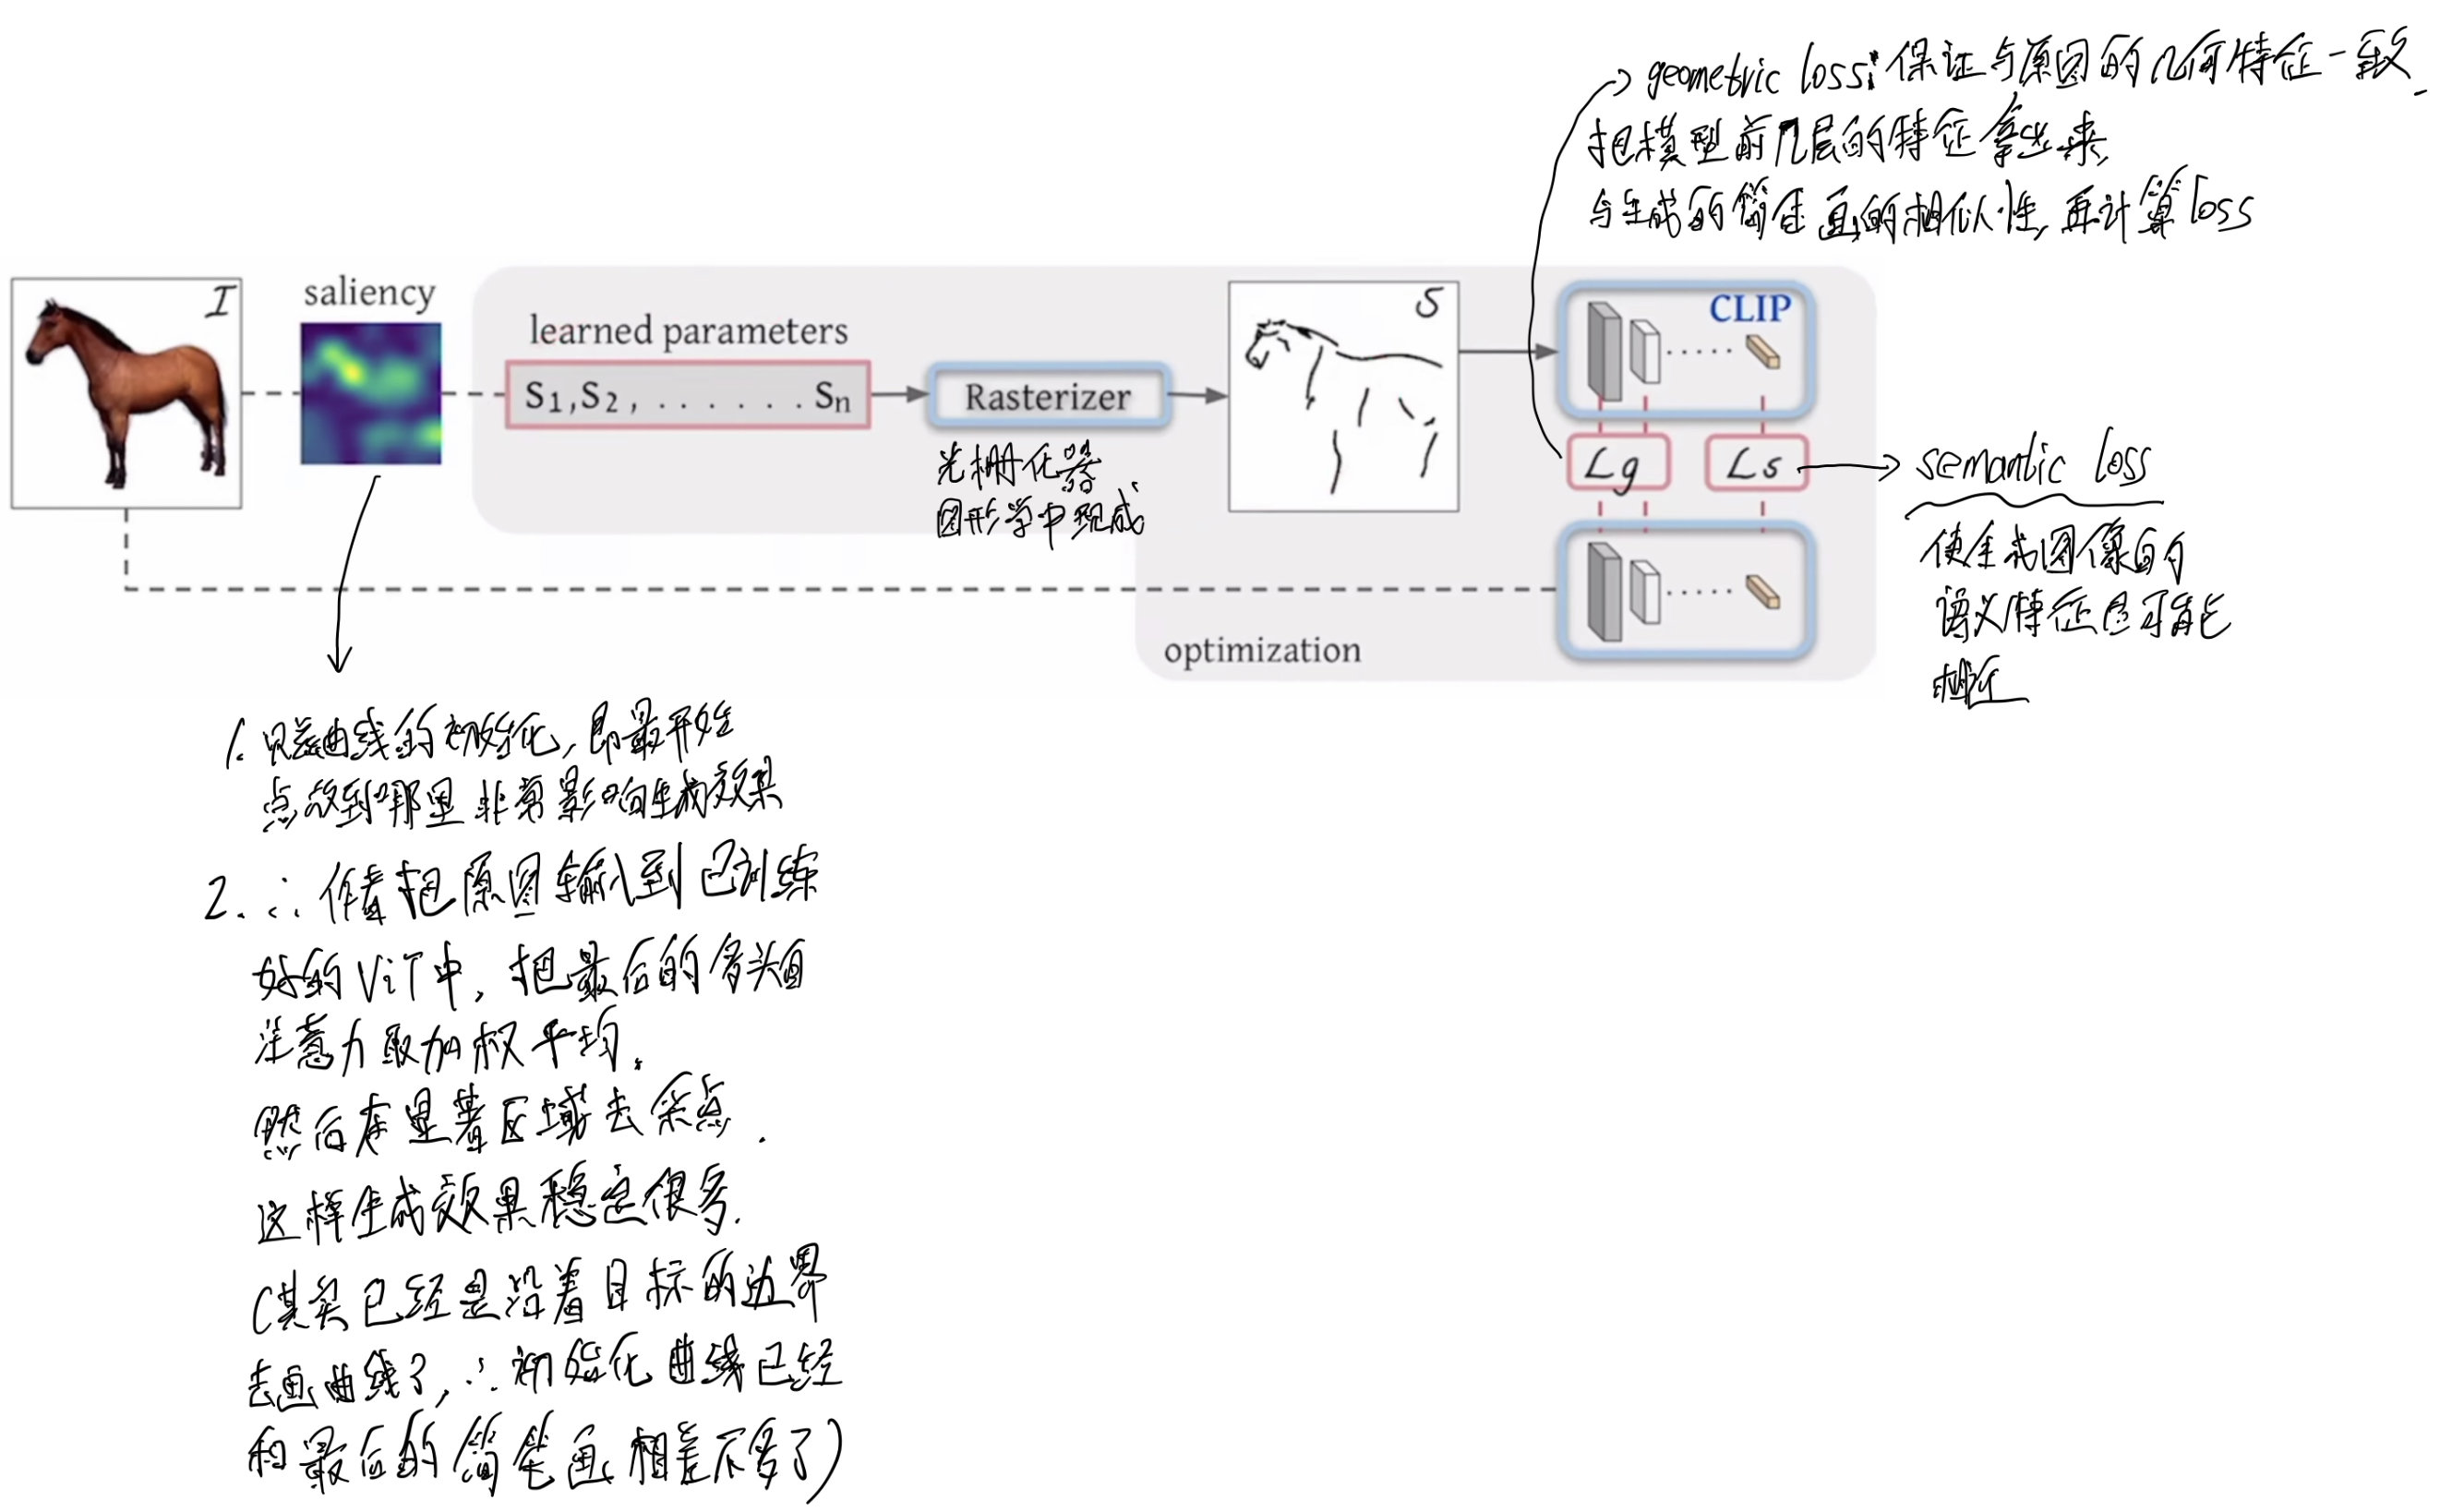 geometric loss: 保证与原图的几何特征一致.
把模型前几层的特征拿出来,
与生成的简笔画的相似性, 再计算loss
I
saliency
learned parameters
S1,S2, . . . . . . . Sn
Rasterizer
光栅化器
图形学中现成
S
CLIP
Lg
Ls
semantic loss
使生成图像的
语义特征尽可能
相近
optimization
1. 贝兹曲线的初始化, 即最开始
点放到哪里非常影响生成效果
2. ∴ 作者把原图输入到已训练
好的ViT中, 把最后的多头自
注意力取加权平均.
然后在显著区域去采点.
这样生成效果稳定很多.
(其实已经是沿着目标的边界
去画曲线了, ∴初始化曲线已经
和最后的简笔画相差不多了)